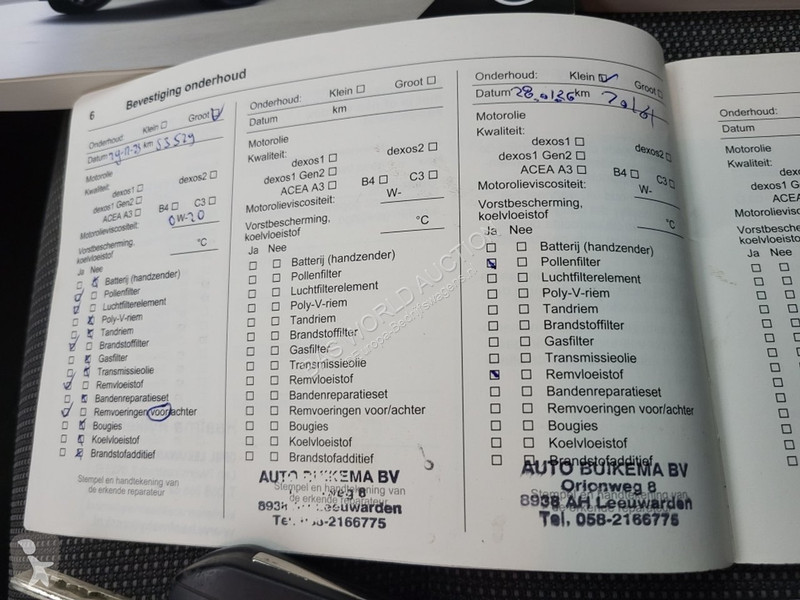 6 Bevestiging onderhoud
Onderhoud: Klein Groot
Datum km
Motorolie
Kwaliteit:
dexos1 dexos2
dexos1 Gen2
ACEA A3 B4 C3
Motorolieviscositeit: 0W-20
Vorstbescherming,
koelvloeistof °C
Ja Nee
Batterij (handzender)
Pollenfilter
Luchtfilterelement
Poly-V-riem
Tandriem
Brandstoffilter
Gasfilter
Transmissieolie
Remvloeistof
Bandenreparatieset
Remvoeringen voor/achter
Bougies
Koelvloeistof
Brandstofadditief
Stempel en handtekening van
de erkende reparateur
Onderhoud: Klein Groot
Datum km
Motorolie
Kwaliteit:
dexos1 dexos2
dexos1 Gen2
ACEA A3 B4 C3
Motorolieviscositeit: W-
Vorstbescherming,
koelvloeistof °C
Ja Nee
Batterij (handzender)
Pollenfilter
Luchtfilterelement
Poly-V-riem
Tandriem
Brandstoffilter
Gasfilter
Transmissieolie
Remvloeistof
Bandenreparatieset
Remvoeringen voor/achter
Bougies
Koelvloeistof
Brandstofadditief
AUTO BUIKEMA BV
Stempel en handtekening van
de erkende reparateur
8938 Leeuwarden
Tel. 058-2166775
Onderhoud: Klein Groot
Datum km
Motorolie
Kwaliteit:
dexos1 dexos2
dexos1 Gen2
ACEA A3 B4 C3
Motorolieviscositeit: W-
Vorstbescherming,
koelvloeistof °C
Ja Nee
Batterij (handzender)
Pollenfilter
Luchtfilterelement
Poly-V-riem
Tandriem
Brandstoffilter
Gasfilter
Transmissieolie
Remvloeistof
Bandenreparatieset
Remvoeringen voor/achter
Bougies
Koelvloeistof
Brandstofadditief
AUTO BUIKEMA BV
Orionweg 8
Stempel en handtekening van
8938 AH Leeuwarden
de erkende reparateur
Tel. 058-2166775
Onderhoud:
Datum
Motorolie
Kwaliteit:
dexos1
dexos1 Gen2
ACEA A3
Motorolieviscositeit:
Vorstbescherming,
koelvloeistof
Ja Nee